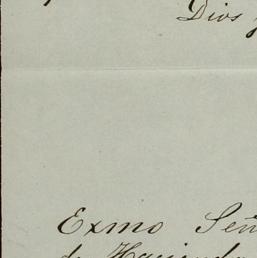 Dios
Exmo Señ
de Hacienda